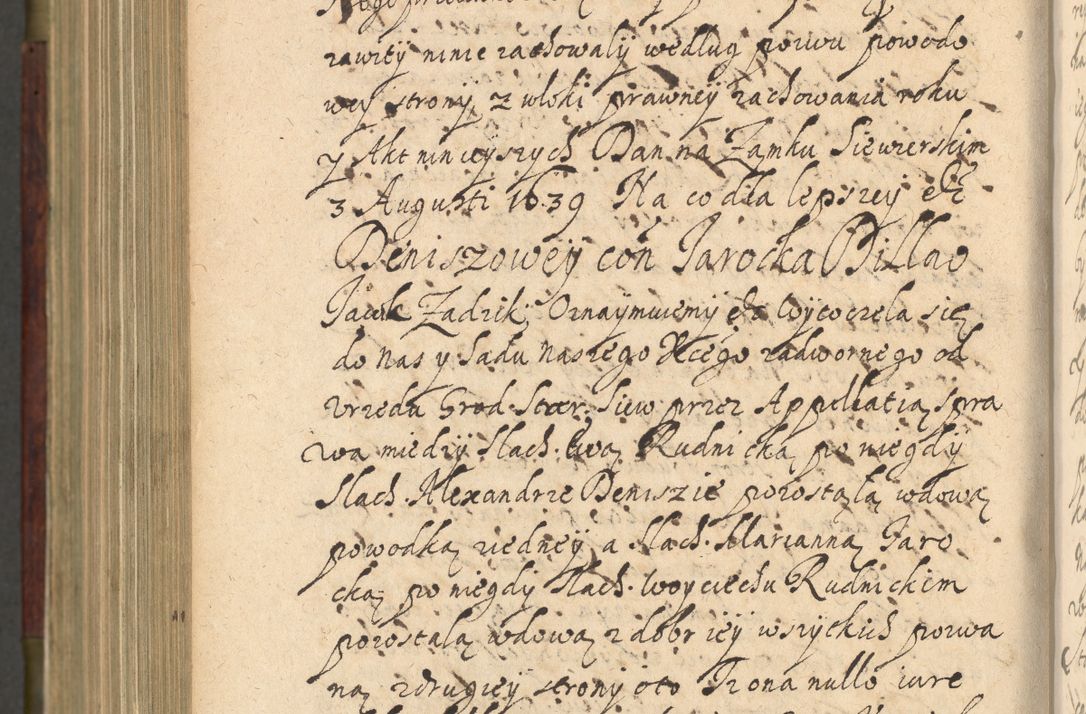 rawity ninie zachowaly według pozwu powodo
wey strony z wloki prawney zachowania roku
y Akt ninieyszych Dan na Zamku Siewierskim
3 Augusti 1639 Na co dla lepszey etc
Deniszowey con Jarocka Billao
Jacok Zadzik, Oznaymuiemy etc Wytoczela się
do nas y Sadu naszego Xcego zadwornego od
Vrzedu Grod. Star. Siew przez Appellatią spra
wa miedzy Slach. Ewą Rudnicką po niegdy
Slach. Alexandrze Deniszie pozostałą wdową
powodką ziedney a Slach. Marianną Jaro
cką po niegdy Slach. Woyciechu Rudnickiem
pozostalą wdową z dobr iey wszytkich pozwa
ną zdrugiey strony oto Iz ona nullo iure